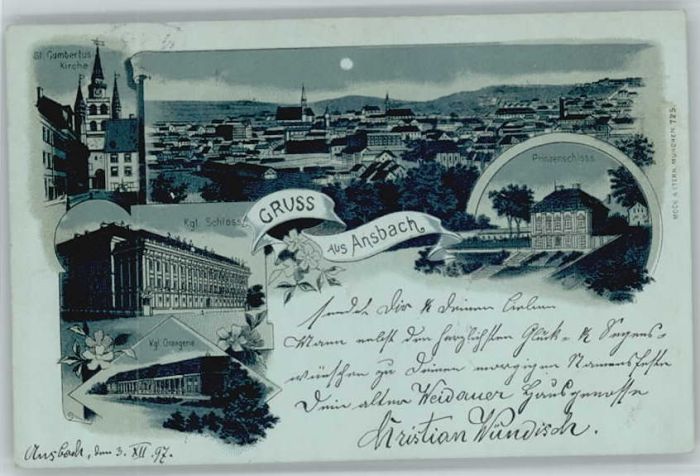 St. Gumbertus-
Kirche
Prinzenschloss
MOCK & STERN, MÜNCHEN. 725.
Kgl. Schloss
GRUSS
Aus Ansbach
Kgl. Orangerie
sendet Dir & Deinem lieben
Mann nebst den herzlichsten Glück- & Segens-
wünschen zu Deinem morgigen Namensfeste
Dein alter Weidauer Hausgenosse
Christian Wündisch.
Ansbach, den 3. XII 97.